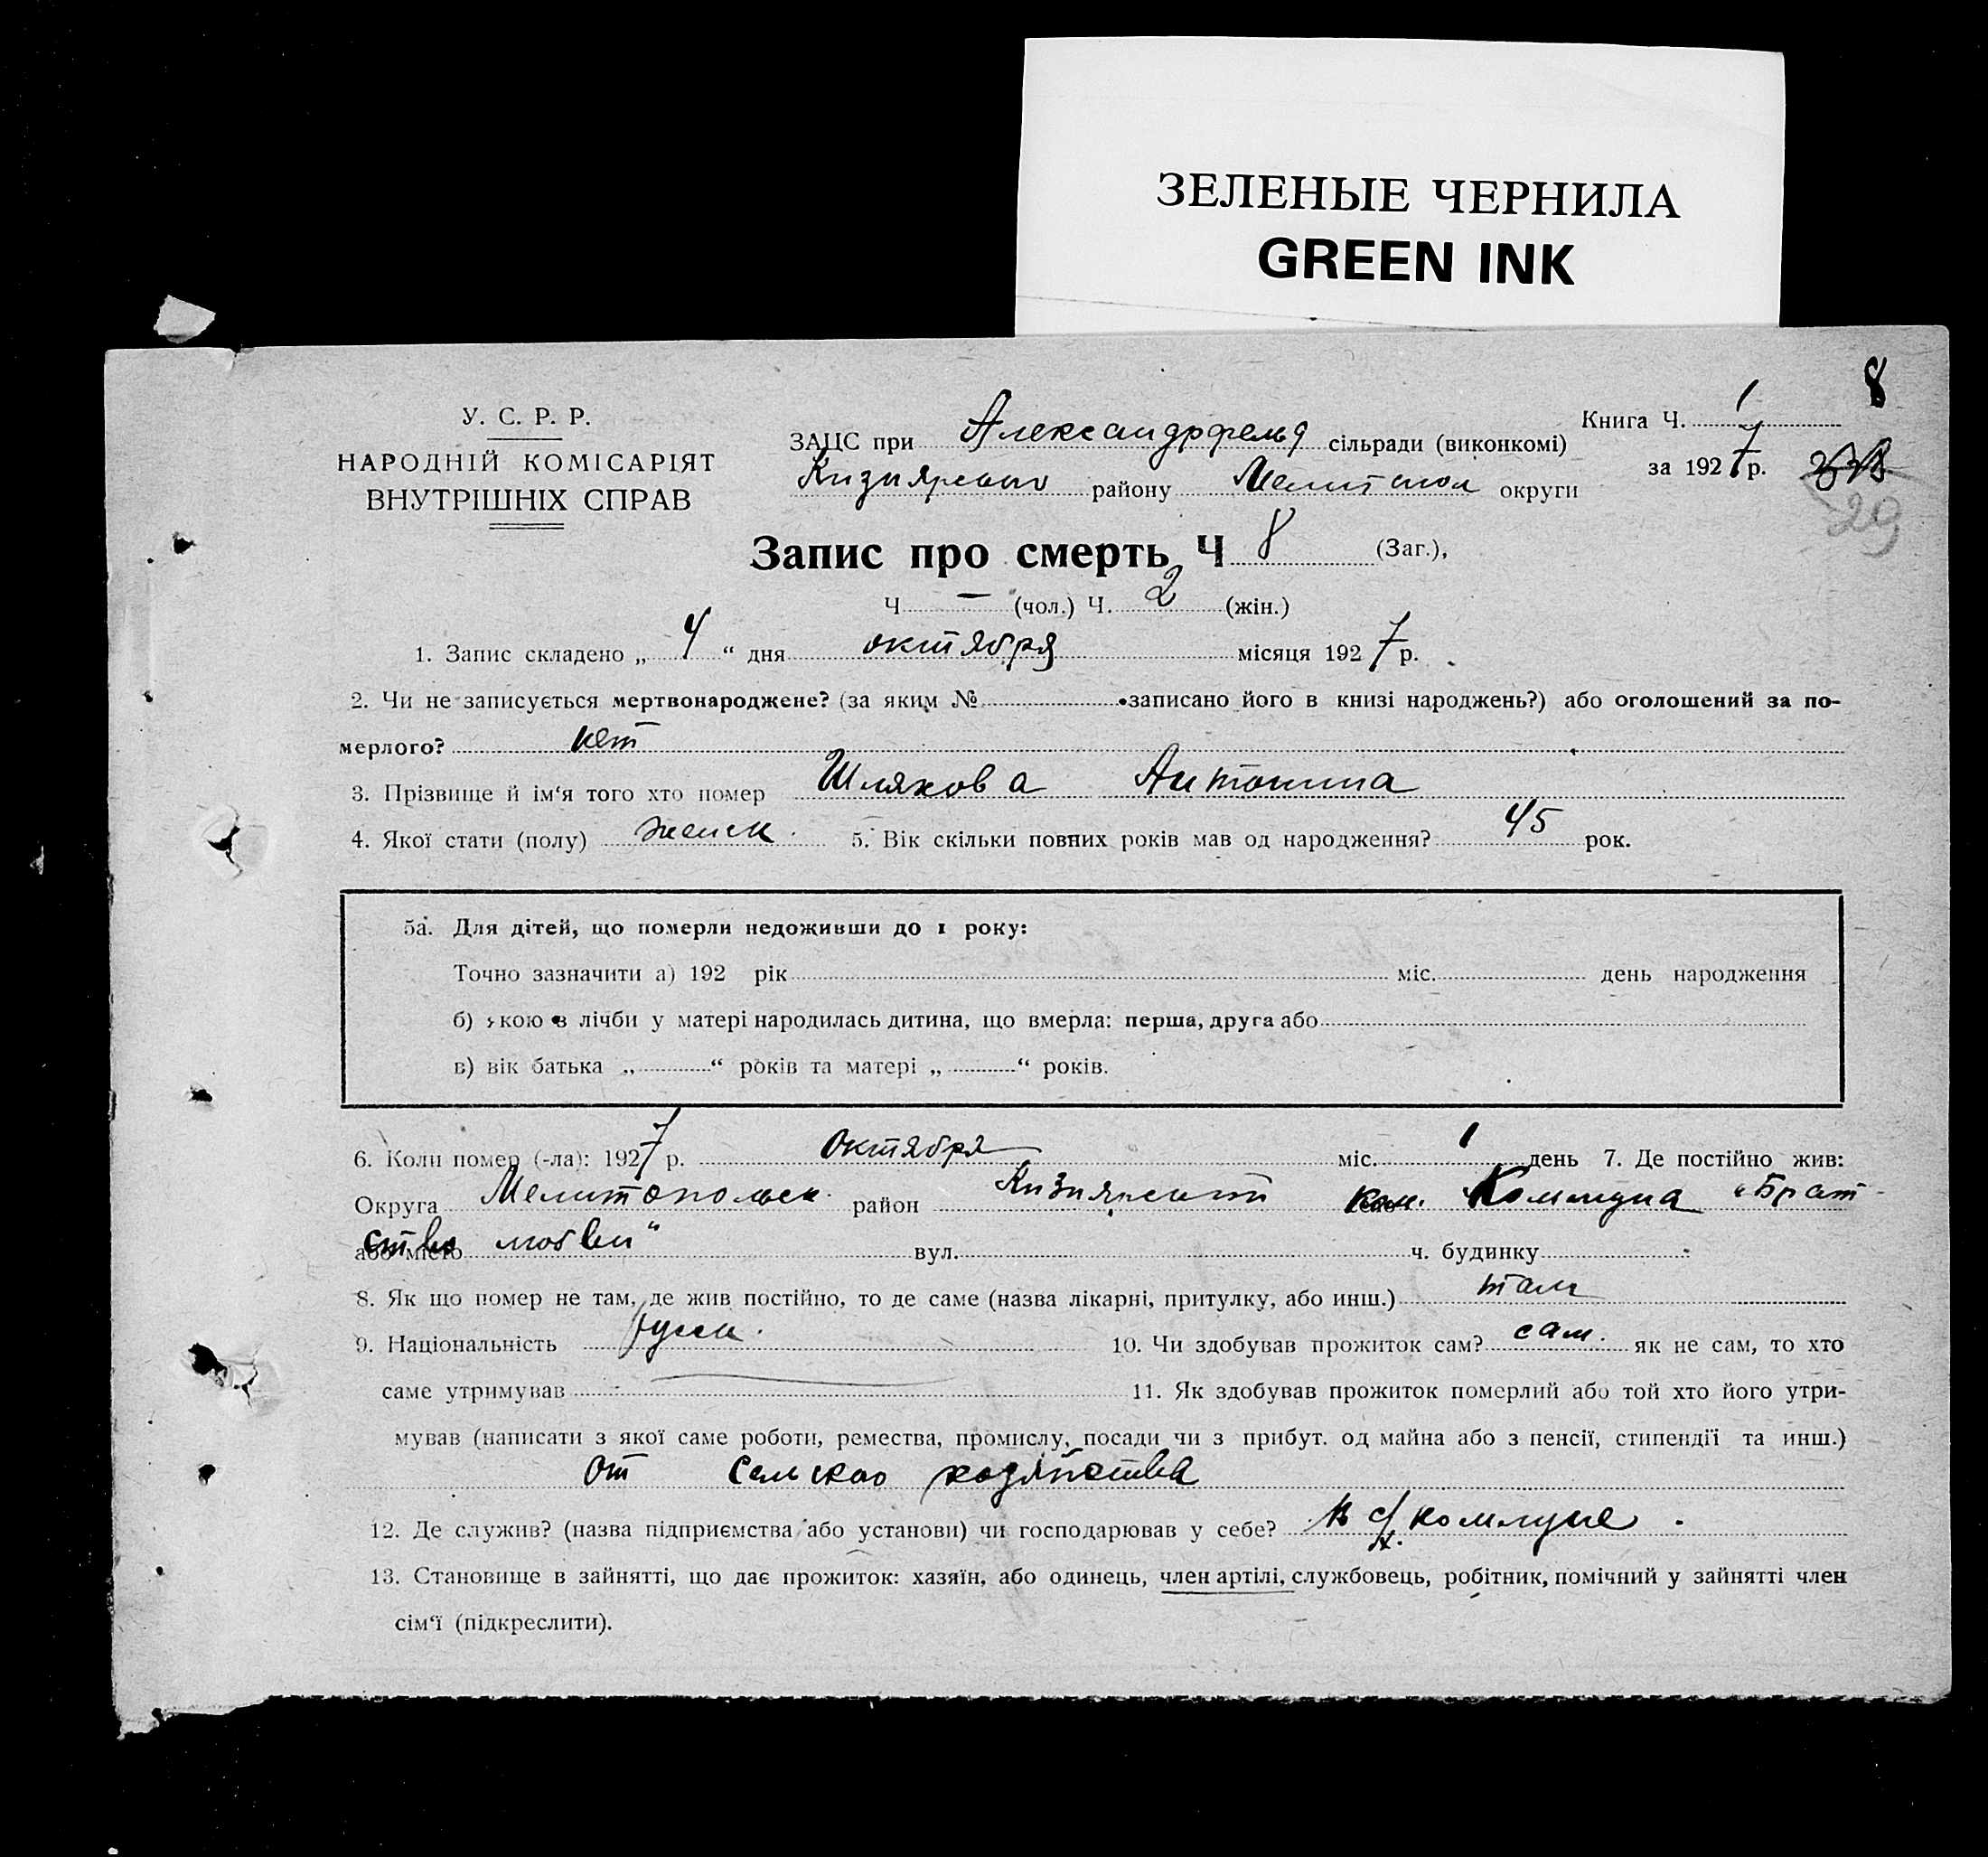 ЗЕЛЕНЫЕ ЧЕРНИЛА
GREEN INK
8
У. С. Р. Р.
НАРОДНІЙ КОМІСАРІЯТ
ВНУТРІШНІХ СПРАВ
ЗАЦС при Александрфельд сільради (виконкомі)
Книга Ч. 1
Кизиярского району Мелитопол округи
за 1927 р.
29
Запис про смерть Ч 8 (Заг.),
Ч — (чол.) Ч. 2 (жін.)
1. Запис складено „ 4 “ дня октября місяця 1927 р.
2. Чи не записується мертвонароджене? (за яким № записано його в книзі народжень?) або оголошений за по-
мерлого? нет
3. Прізвище й ім‘я того хто помер Шляхова Антонина
4. Якої стати (полу) женск. 5. Вік скільки повних років мав од народження? 45 рок.
5а. Для дітей, що померли недоживши до 1 року:
Точно зазначити а) 192 рік міс. день народження
б) якою з лічби у матері народилась дитина, що вмерла: перша, друга або
в) вік батька „ “ років та матері „ “ років.
6. Коли помер (-ла): 1927 р. Октября міс. 1 день 7. Де постійно жив:
Округа Мелитопольск. район Кизиярский Коммуна „Брат-
або місто ство любви“ вул. ч. будинку
8. Як що помер не там, де жив постійно, то де саме (назва лікарні, притулку, або инш.) там
9. Національність русск. 10. Чи здобував прожиток сам? сам. як не сам, то хто
саме утримував 11. Як здобував прожиток померлий або той хто його утри-
мував (написати з якої саме роботи, ремества, промислу, посади чи з прибут. од майна або з пенсії, стипендії та инш.)
от сельского хозяйства
12. Де служив? (назва підприємства або установи) чи господарював у себе? в с/х. коммуне.
13. Становище в зайнятті, що дає прожиток: хазяїн, або одинець, член артілі, службовець, робітник, помічний у зайнятті член
сім‘ї (підкреслити).